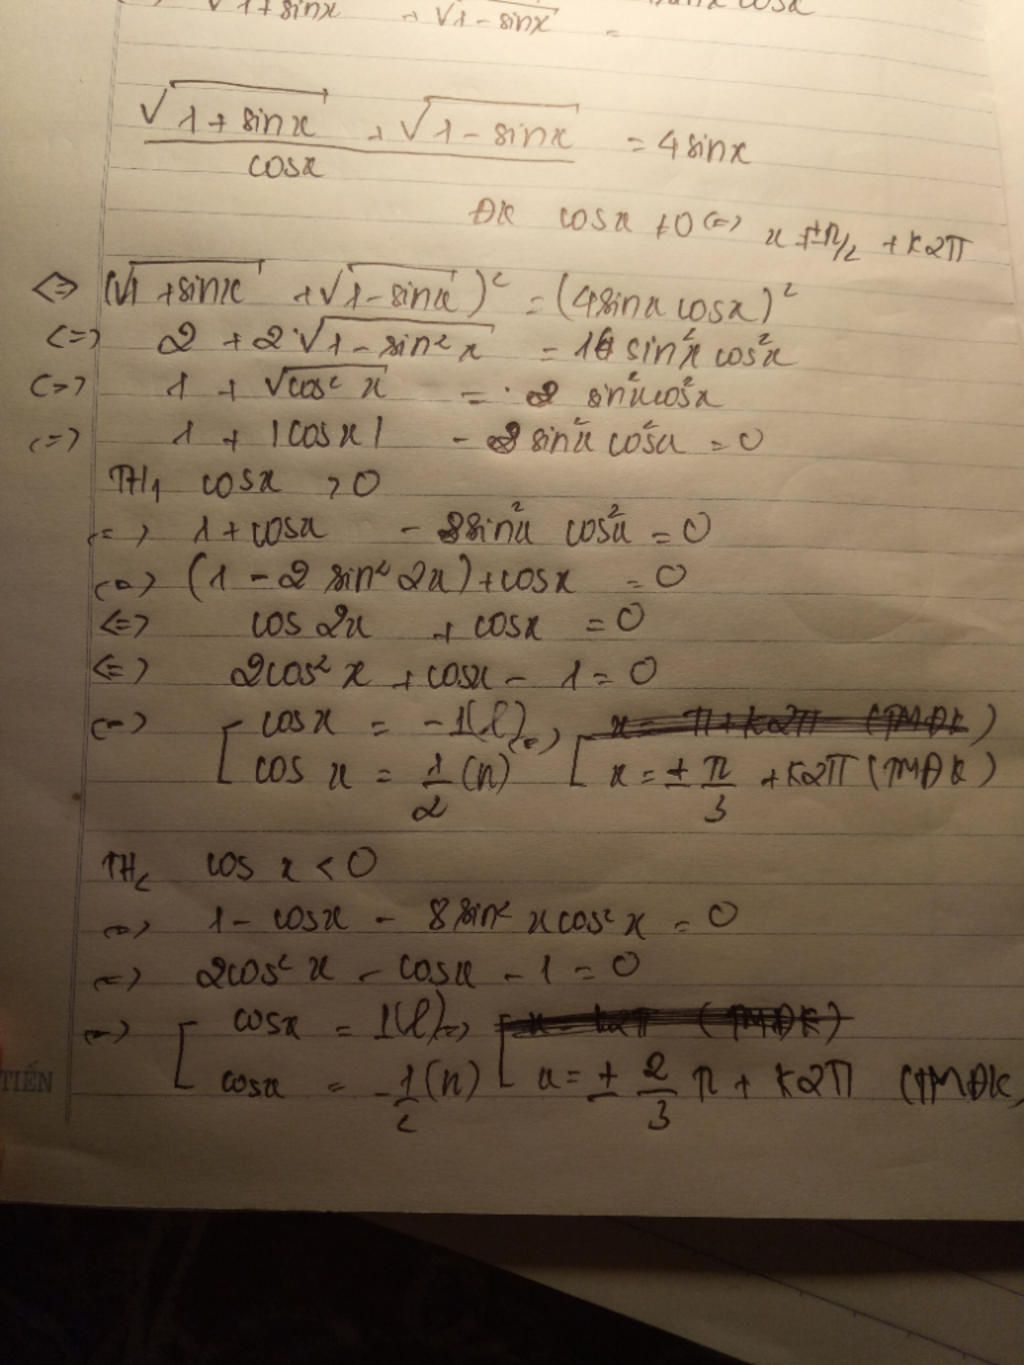 √1+sinx + √1-sinx =
(√(1+sinx) + √(1-sinx)) / cosx = 4sinx
ĐK cosx ≠ 0 <=> x ≠ ±π/2 + k2π
<=> (√(1+sinx) + √(1-sinx))² = (4sinx cosx)²
<=> 2 + 2√(1-sin²x) = 16 sin²x cos²x
<=> 1 + √(cos²x) = 8 sin²xcos²x
<=> 1 + |cosx| - 8sin²x cos²x = 0
TH1 cosx > 0
<=> 1 + cosx - 8sin²x cos²x = 0
<=> (1 - 2 sin² 2x) + cosx = 0
<=> cos 2x + cosx = 0
<=> 2cos² x + cosx - 1 = 0
<=> [ cosx = -1(l) <=> [ x = π + k2π (TMĐK)
cos x = 1/2 (n) x = ± π/3 + k2π (TMĐK)
TH2 cos x < 0
<=> 1 - cosx - 8sin² x cos² x = 0
<=> 2cos² x - cosx - 1 = 0
<=> [ cosx = 1(l) <=> [ x = k2π (TMĐK)
cosx = -1/2 (n) x = ± 2/3 π + k2π (TMĐK)
TIẾN